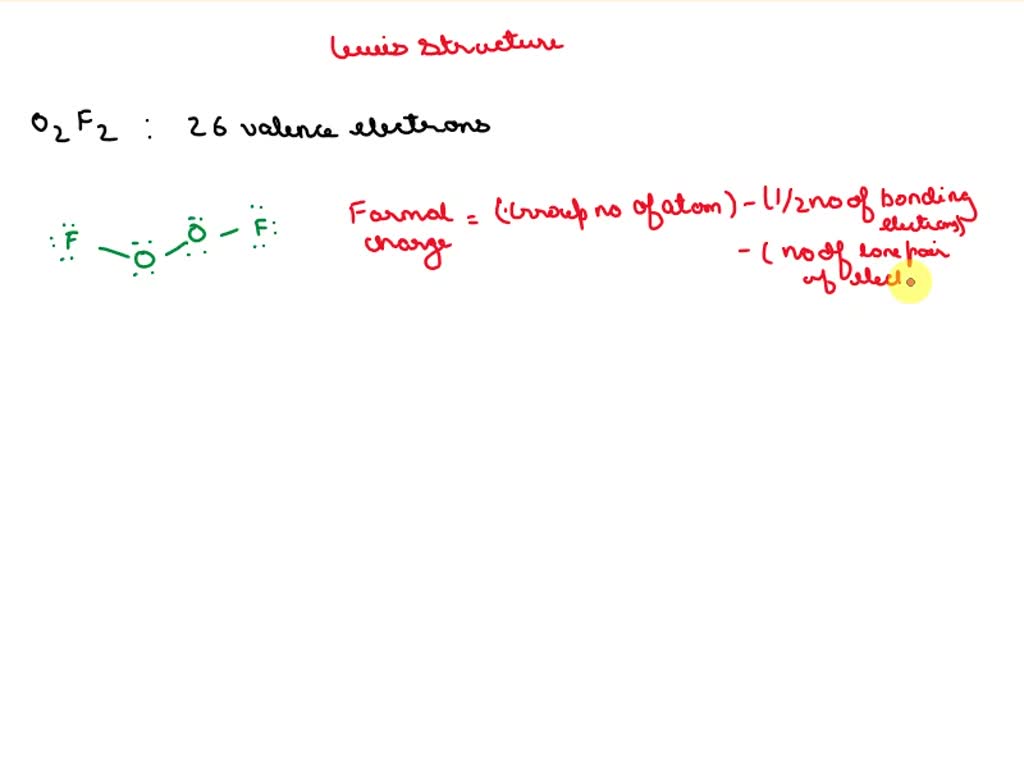 Lewis structure
O2F2 : 26 valence electrons
:F — O — O — F:
Formal charge = (Group no of atom) - (1/2 no of bonding electrons)
- (no of lone pair
of elect